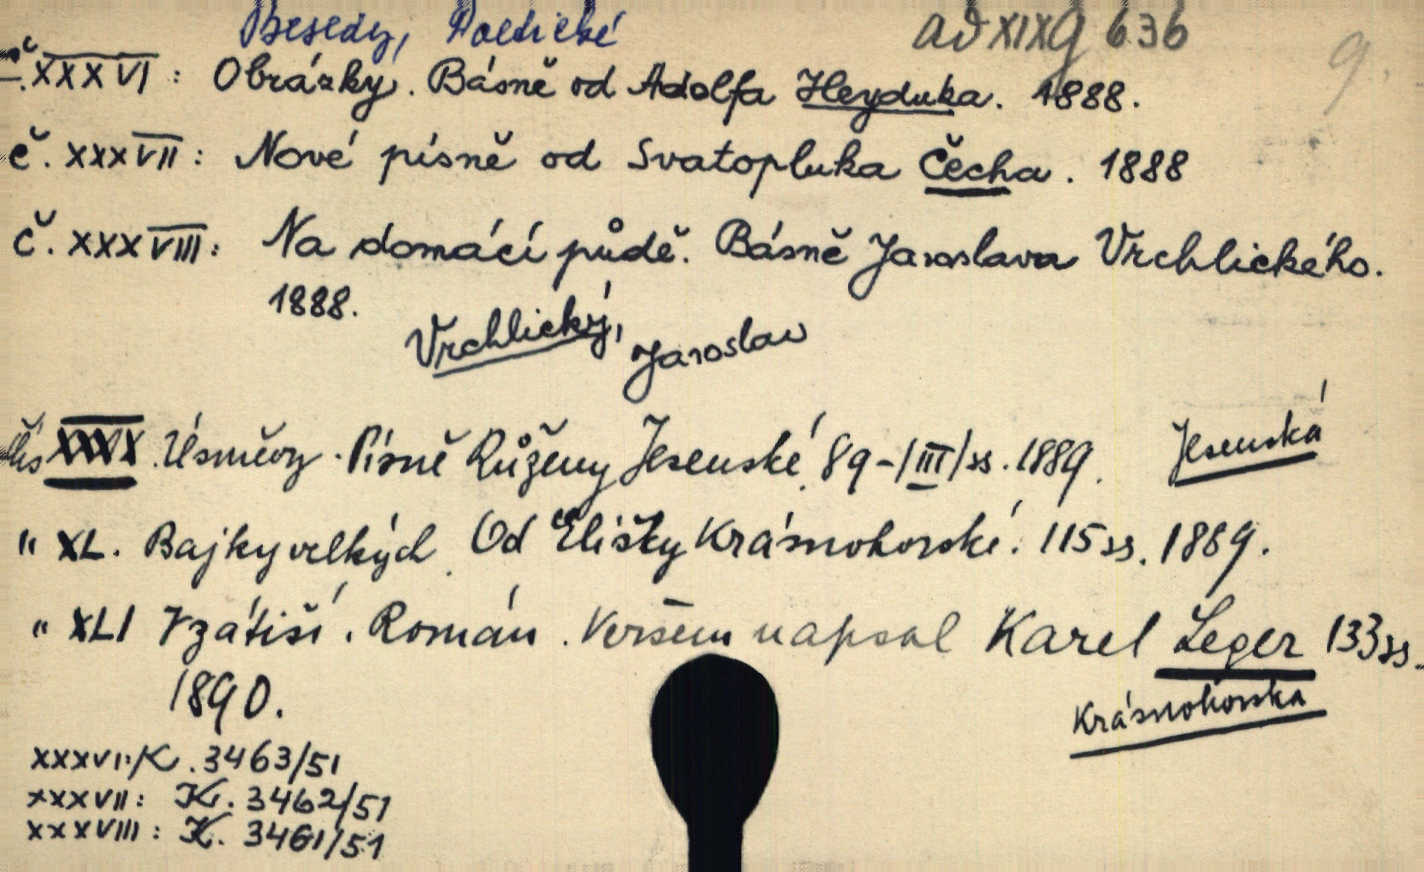 Besedy, Poetické ad XIX g 636
9.
č. XXXVI: Obrázky. Básně od Adolfa Heyduka. 1888.
č. XXXVII: Nové písně od Svatopluka Čecha. 1888
č. XXXVIII: Na domácí půdě. Básně Jaroslava Vrchlického.
1888.
Vrchlický, Jaroslav
čís XXXIX. Úsměvy. Písně Růženy Jesenské. 89-/III/ss. 1889. Jesenská
" XL. Bajky velkých. Od Elišky Krásnohorské. 115 ss. 1889.
" XLI V zátiší. Román. Veršem napsal Karel Leger 133 ss.
1890.
Krásnohorska
XXXVI: K. 3463/51
XXXVII: K. 3462/51
XXXVIII: K. 3461/51